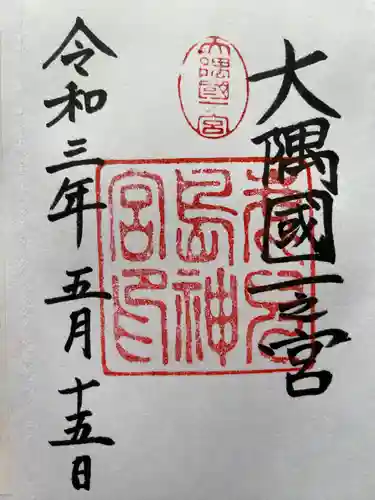 大隅國一之宮
大隅國一宮
鹿児島神宮印
令和三年五月十五日